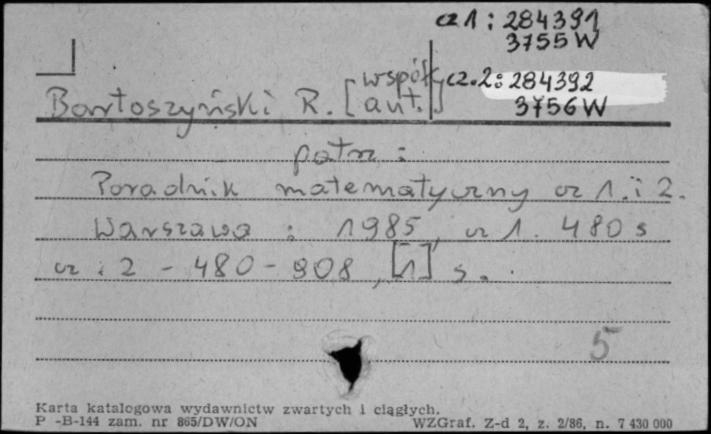 cz 1 : 284391
3755 W
cz. 2: 284392
3756 W
Bartoszyński R. [współ. aut.]
patrz :
Poradnik matematyczny cz 1. i 2.
Warszawa : 1985, cz 1. 480 s
cz. 2 - 480-908, [1] s.
5
Karta katalogowa wydawnictw zwartych i ciągłych.
P -B-144 zam. nr 865/DW/ON
WZGraf. Z-d 2, z. 2/86, n. 7 430 000